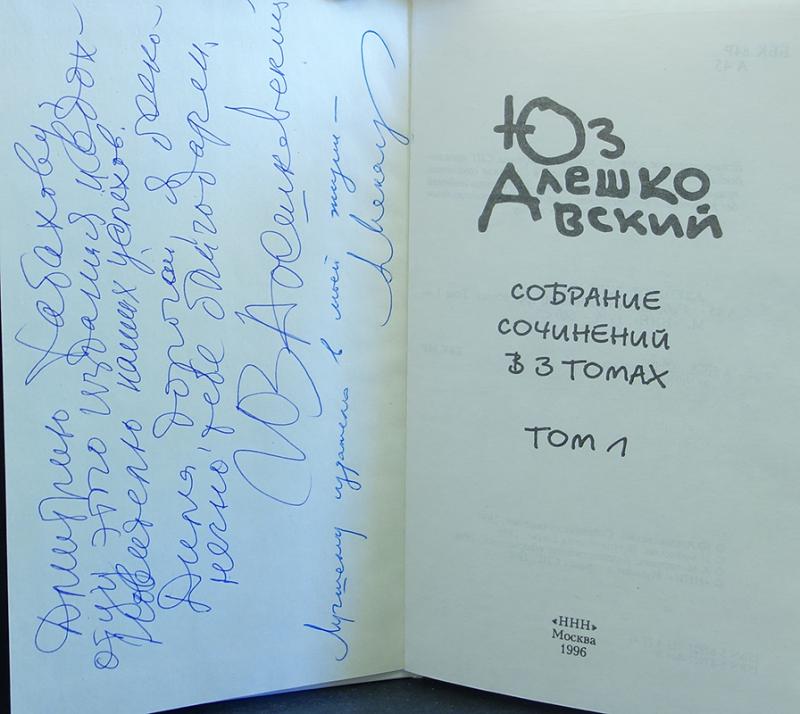 Дмитрию Хабахову
отцу этого издания и вдох-
новителю наших успехов.
Дима, дорогой, я беско-
нечно тебе благодарен,
Юз Алешковский
Лучшему издателю в моей жизни —
Юз
Алешко
вский
СОБРАНИЕ
СОЧИНЕНИЙ
В 3 ТОМАХ
ТОМ 1
«ННН»
Москва
1996